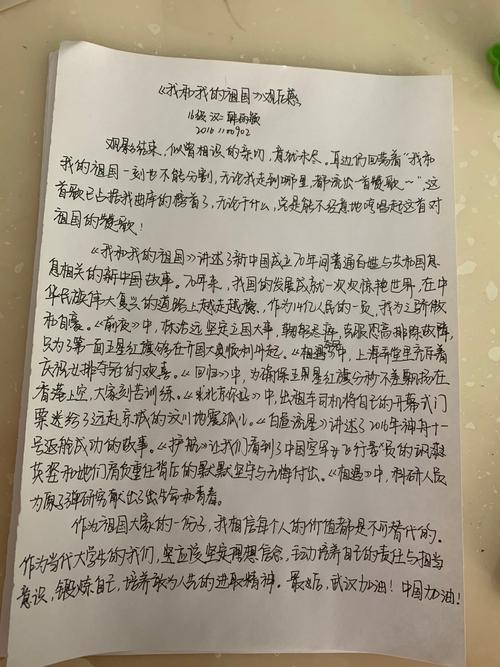 《我和我的祖国》观后感
16级 汉二
20161100902
观影结束，似曾相识的亲切，意犹未尽。耳边仍回荡着“我和
我的祖国一刻也不能分割，无论我走到哪里，都流出一首赞歌～”，这
首歌已占据我曲库的榜首了，无论干什么，总是能不经意地哼唱起这首对
祖国的赞歌！
《我和我的祖国》讲述了新中国成立70年间普通百姓与共和国息
息相关的新中国故事。70年来，我国的发展成就一次次惊艳世界，在中
华民族伟大复兴的道路上越走越稳，作为14亿人民的一员，我为之骄傲
和自豪。《前夜》中，林治远坚定立国大事，克服恐高排除故障，
只为了第一面五星红旗能在开国大典顺利升起。《相遇》中，上海弄堂里充斥着
庆祝女排夺冠的欢喜。《回归》中，为确保五星红旗分秒不差飘扬在
香港上空，大家刻苦训练。《北京你好》中，出租车司机将自己的开幕式门
票送给了远赴京城的汶川地震孤儿。《白昼流星》讲述了2016年神舟十一
号返程成功的故事。《护航》让我们看到了中国空军女飞行员的飒爽
英姿和她们肩负重任背后的默默坚守与无悔付出。《相遇》中，科研人员
为原子弹研究献出了生命和青春。
作为祖国大家的一份子，我相信每个人的价值都是不可替代的。
作为当代大学生的我们，更应该坚定理想信念，主动培养自己的责任与担当
意识，锻炼自己，培养敢为人先的进取精神。最后，武汉加油！中国加油！